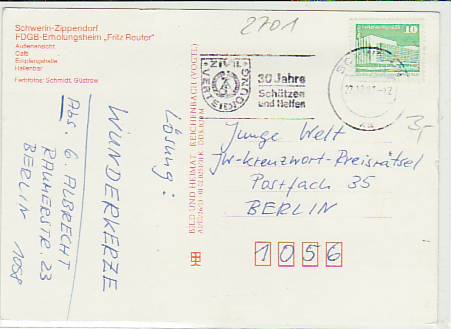 2701
Schwerin-Zippendorf
FDGB-Erholungsheim „Fritz Reuter"
Außenansicht
Café
Empfangshalle
Hallenbar
Farbfotos: Schmidt, Güstrow
ZIVIL-
VERTEIDIGUNG
30 Jahre
Schützen
und Helfen
10
3,-
BILD UND HEIMAT REICHENBACH (VOGTL)
Lösung:
WUNDERKERZE
Abs. G. ALBRECHT
RAUMERSTR. 23
BERLIN 1058
Junge Welt
jw-kreuzwort-Preisrätsel
Postfach 35
BERLIN
1056